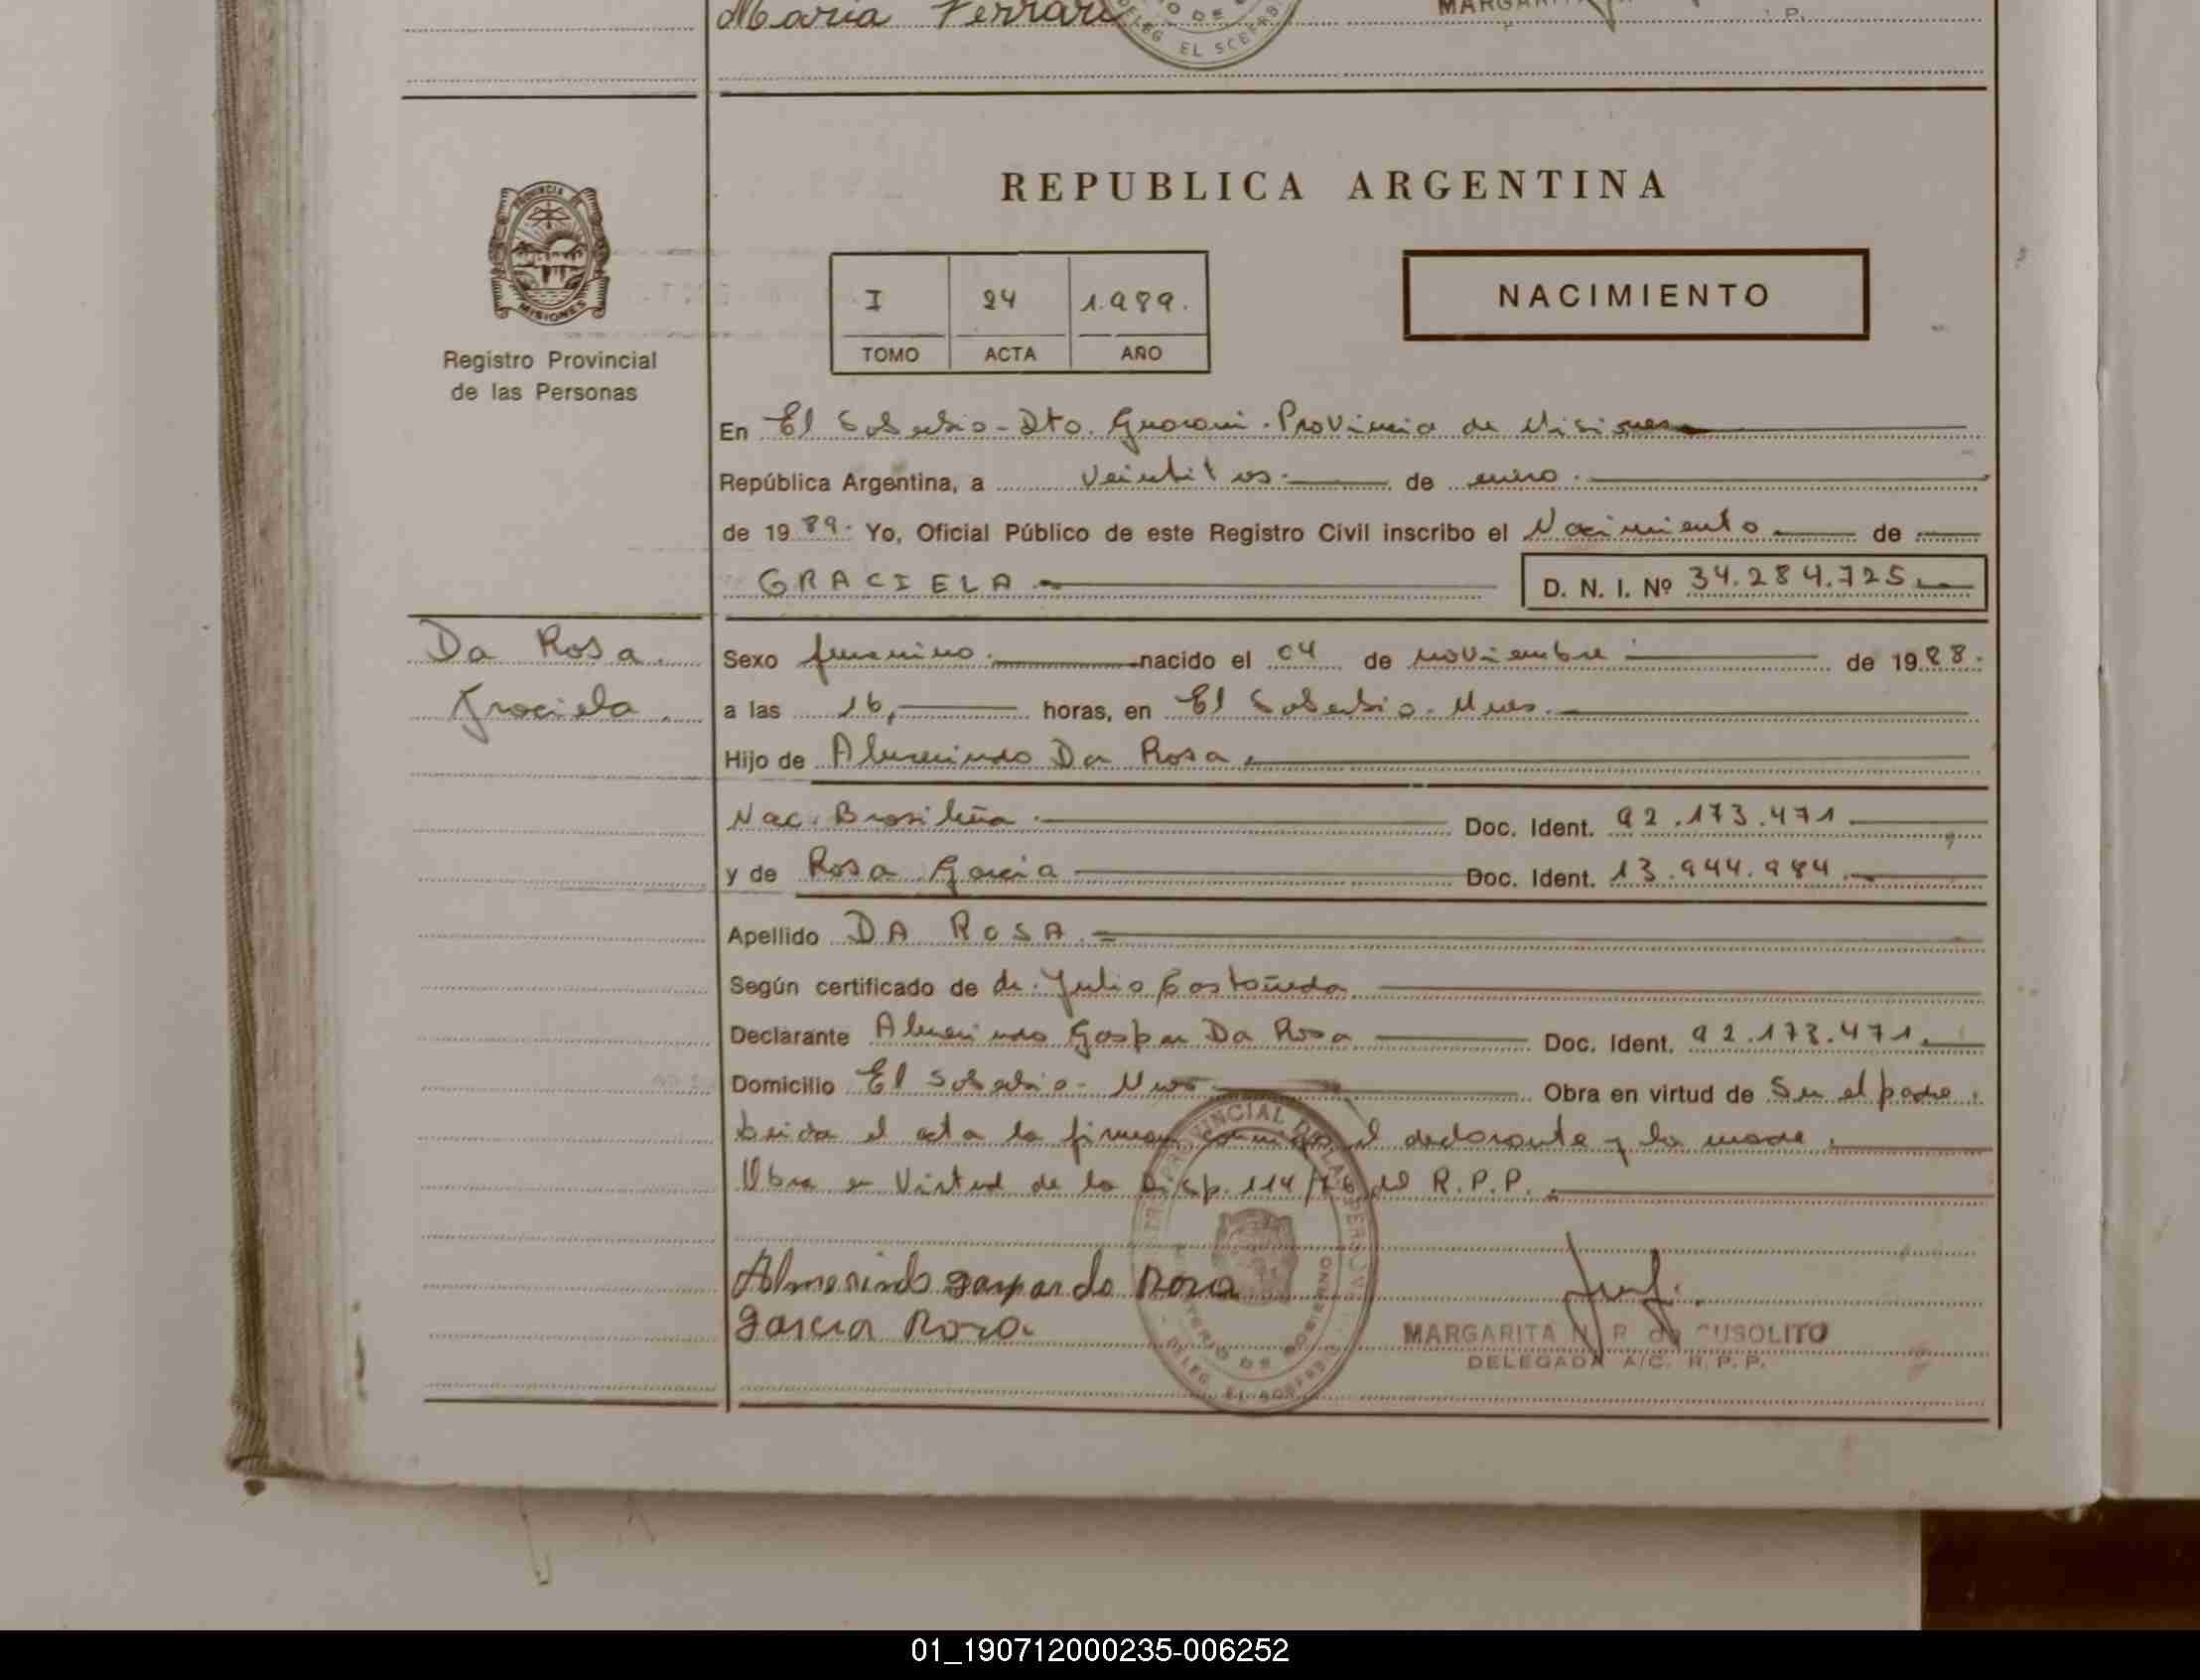 Maria Ferrari
DELEG EL SOBERBIO
REPUBLICA ARGENTINA
PROVINCIA DE MISIONES
I 24 1.989.
TOMO ACTA AÑO
NACIMIENTO
Registro Provincial
de las Personas
En El Soberbio - Dto. Guarani. Provincia de Misiones
República Argentina, a de enero.
de 1989. Yo, Oficial Público de este Registro Civil inscribo el Nacimiento de
GRACIELA D. N. I. Nº 34.284.725
Da Rosa
Graciela
Sexo femenino. nacido el 04 de noviembre de 1988.
a las 16, horas, en El Soberbio. Mnes.
Hijo de Almerindo Da Rosa
Nac. Brasileña. Doc. Ident. 92.173.471
y de Rosa Garcia Doc. Ident. 13.944.984
Apellido DA ROSA
Según certificado de dr. Julio Castañeda
Declarante Almerindo Gaspar Da Rosa Doc. Ident. 92.173.471
Domicilio El Soberbio - Mnes Obra en virtud de Ser el padre.
Leida el acta la firman conmigo el declarante y la madre.
Obra en Virtud de la Disp. 114/76 del R.P.P.
Almerindo gaspar da Rosa
garcia Rosa
MARGARITA N. R. de CUSOLITO
DELEGADA A/C. R. P. P.
01_190712000235-006252